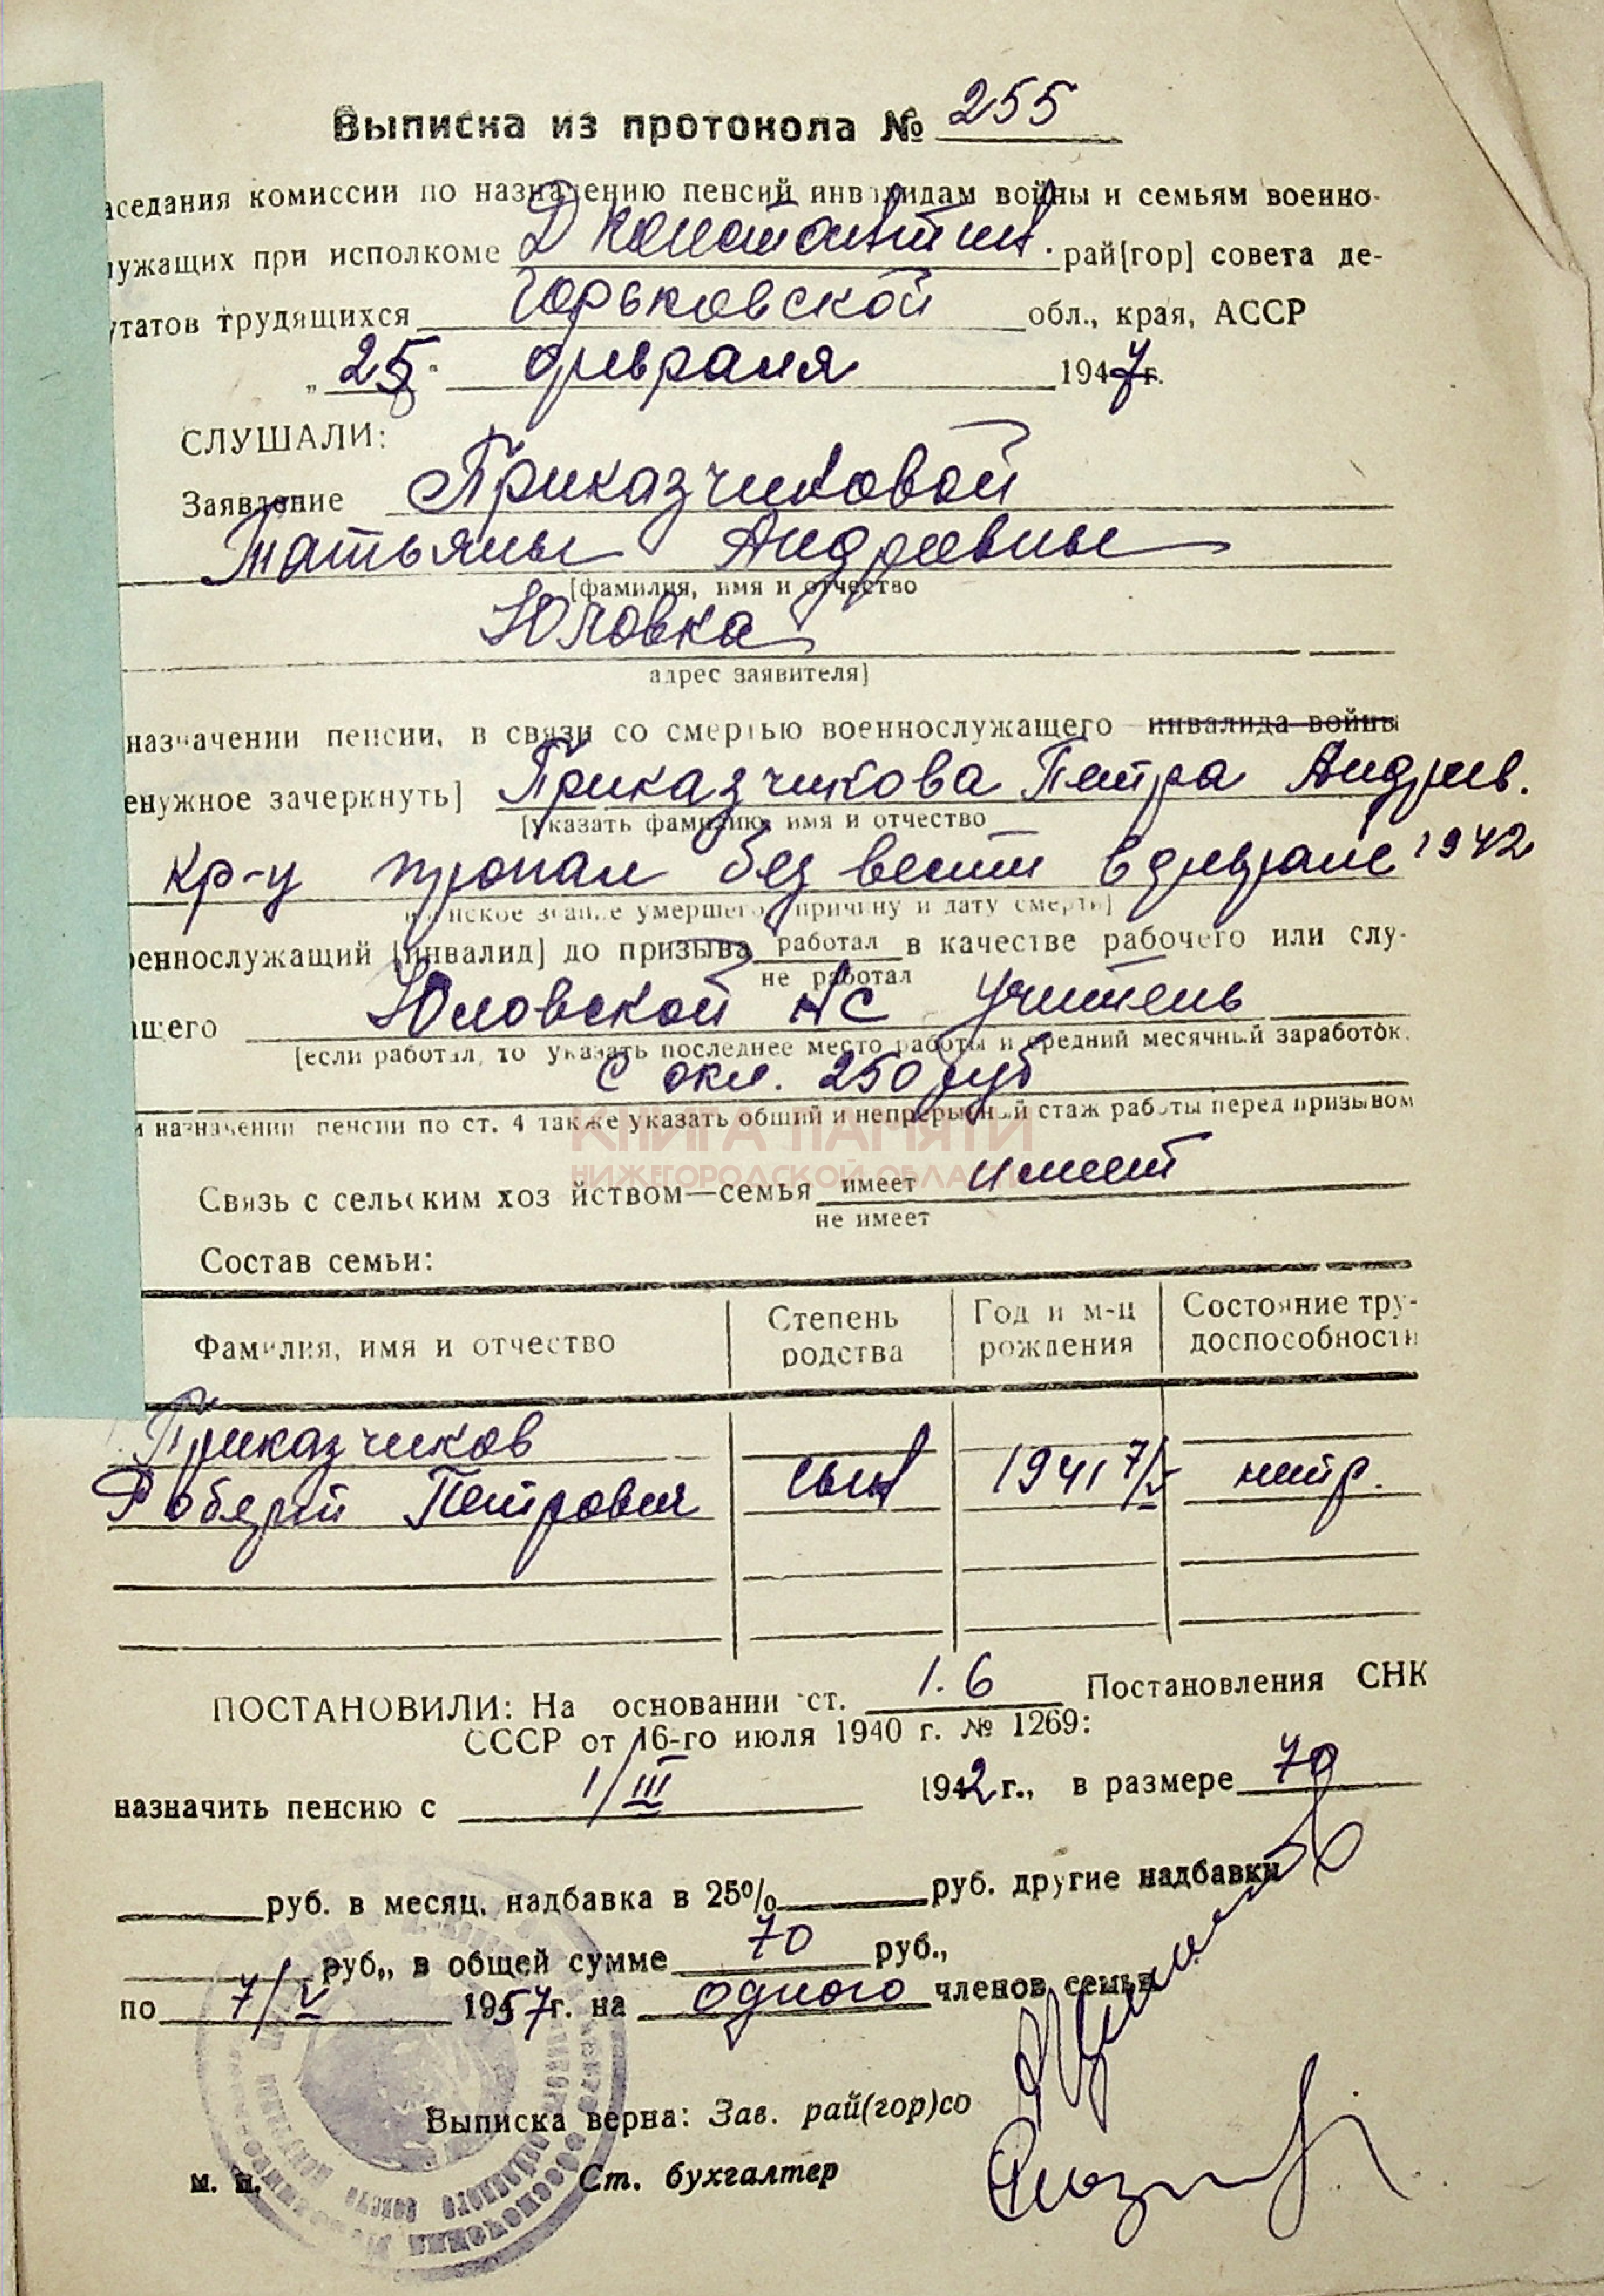 Выписка из протокола № 255
аседания комиссии по назначению пенсий инвалидам войны и семьям военно-
лужащих при исполкоме Д Константин. рай[гор] совета де-
утатов трудящихся Горьковской обл., края, АССР
„25" февраля 1947 г.
СЛУШАЛИ:
Заявление Приказчиковой
Татьяны Андреевны
[фамилия, имя и отчество
Юловка
адрес заявителя]
назначении пенсии, в связи со смертью военнослужащего инвалида войны
енужное зачеркнуть] Приказчикова Петра Андреев.
[указать фамилию, имя и отчество
кр-ц пропал без вести в феврале 1942
воинское звание умершего, причину и дату смерти]
оеннослужащий [инвалид] до призыва работал в качестве рабочего или слу-
не работал
ащего Юловской НС учитель
[если работал, то указать последнее место работы и средний месячный заработок.
с окл. 250 руб
и назначении пенсии по ст. 4 также указать общий и непрерывный стаж работы перед призывом
КНИГА ПАМЯТИ
НИЖЕГОРОДСКОЙ ОБЛАСТИ
Связь с сельским хоз йством—семья имеет имеет
не имеет
Состав семьи:
Фамилия, имя и отчество Степень родства Год и м-ц рождения Состояние тру-доспособности
Приказчиков
Робергй Петрович сын 1941 7/V нетр.
ПОСТАНОВИЛИ: На основании ст. 1.6 Постановления СНК
СССР от 16-го июля 1940 г. № 1269:
назначить пенсию с 1/III 1942 г., в размере 70
руб. в месяц, надбавка в 25% руб. другие надбавки
руб., в общей сумме 70 руб.,
по 7/V 1957 г. на одного членов семьи
Выписка верна: Зав. рай(гор)со
м. п. Ст. бухгалтер